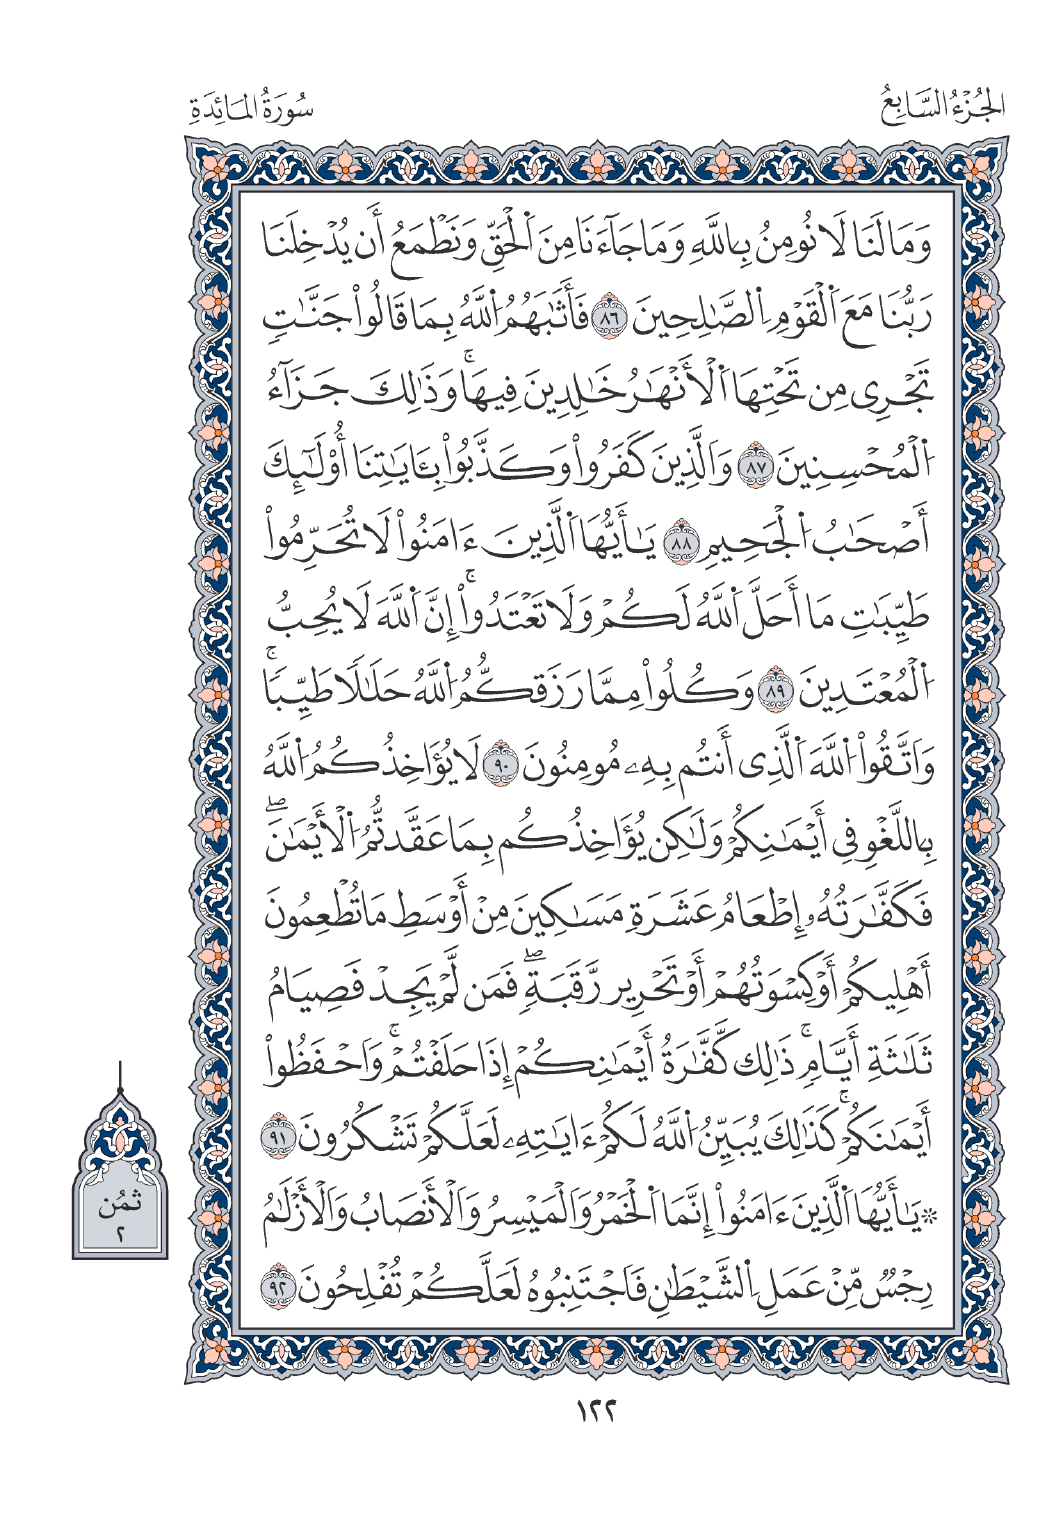 الجُزْءُ السَّابِعُ
سُورَةُ المَائِدَةِ
وَمَا لَنَا لَا نُومِنُ بِاللَّهِ وَمَا جَآءَنَا مِنَ ٱلْحَقِّ وَنَطْمَعُ أَن يُدْخِلَنَا
رَبُّنَا مَعَ ٱلْقَوْمِ ٱلصَّٰلِحِينَ ٨٦ فَأَثَٰبَهُمُ ٱللَّهُ بِمَا قَالُواْ جَنَّٰتٖ
تَجْرِى مِن تَحْتِهَا ٱلْأَنْهَٰرُ خَٰلِدِينَ فِيهَاۚ وَذَٰلِكَ جَزَآءُ
ٱلْمُحْسِنِينَ ٨٧ وَٱلَّذِينَ كَفَرُواْ وَكَذَّبُواْ بِـَٔايَٰتِنَا أُوْلَٰٓئِكَ
أَصْحَٰبُ ٱلْجَحِيمِ ٨٨ يَٰأَيُّهَا ٱلَّذِينَ ءَامَنُواْ لَا تُحَرِّمُواْ
طَيِّبَٰتِ مَا أَحَلَّ ٱللَّهُ لَكُمْ وَلَا تَعْتَدُواْۚ إِنَّ ٱللَّهَ لَا يُحِبُّ
ٱلْمُعْتَدِينَ ٨٩ وَكُلُواْ مِمَّا رَزَقَكُمُ ٱللَّهُ حَلَٰلٗا طَيِّبٗاۚ
وَٱتَّقُواْ ٱللَّهَ ٱلَّذِى أَنتُم بِهِۦ مُومِنُونَ ٩٠ لَا يُؤَاخِذُكُمُ ٱللَّهُ
بِٱللَّغْوِ فِى أَيْمَٰنِكُمْ وَلَٰكِن يُؤَاخِذُكُم بِمَا عَقَّدتُّمُ ٱلْأَيْمَٰنَۖ
فَكَفَّٰرَتُهُۥ إِطْعَامُ عَشَرَةِ مَسَٰكِينَ مِنْ أَوْسَطِ مَا تُطْعِمُونَ
أَهْلِيكُمْ أَوْ كِسْوَتُهُمْ أَوْ تَحْرِير رَّقَبَةٖۖ فَمَن لَّمْ يَجِدْ فَصِيَامُ
ثَلَٰثَةِ أَيَّامٖۚ ذَٰلِك كَّفَّٰرَةُ أَيْمَٰنِكُمْ إِذَا حَلَفْتُمْۚ وَٱحْفَظُواْ
أَيْمَٰنَكُمْۚ كَذَٰلِكَ يُبَيِّنُ ٱللَّهُ لَكُمْ ءَايَٰتِهِۦ لَعَلَّكُمْ تَشْكُرُونَ ٩١
۞ يَٰأَيُّهَا ٱلَّذِينَ ءَامَنُواْ إِنَّمَا ٱلْخَمْرُ وَٱلْمَيْسِرُ وَٱلْأَنصَابُ وَٱلْأَزْلَٰمُ
رِجْسٌ مِّنْ عَمَلِ ٱلشَّيْطَٰنِ فَٱجْتَنِبُوهُ لَعَلَّكُمْ تُفْلِحُونَ ٩٢
ثمُن
٢
١٢٢